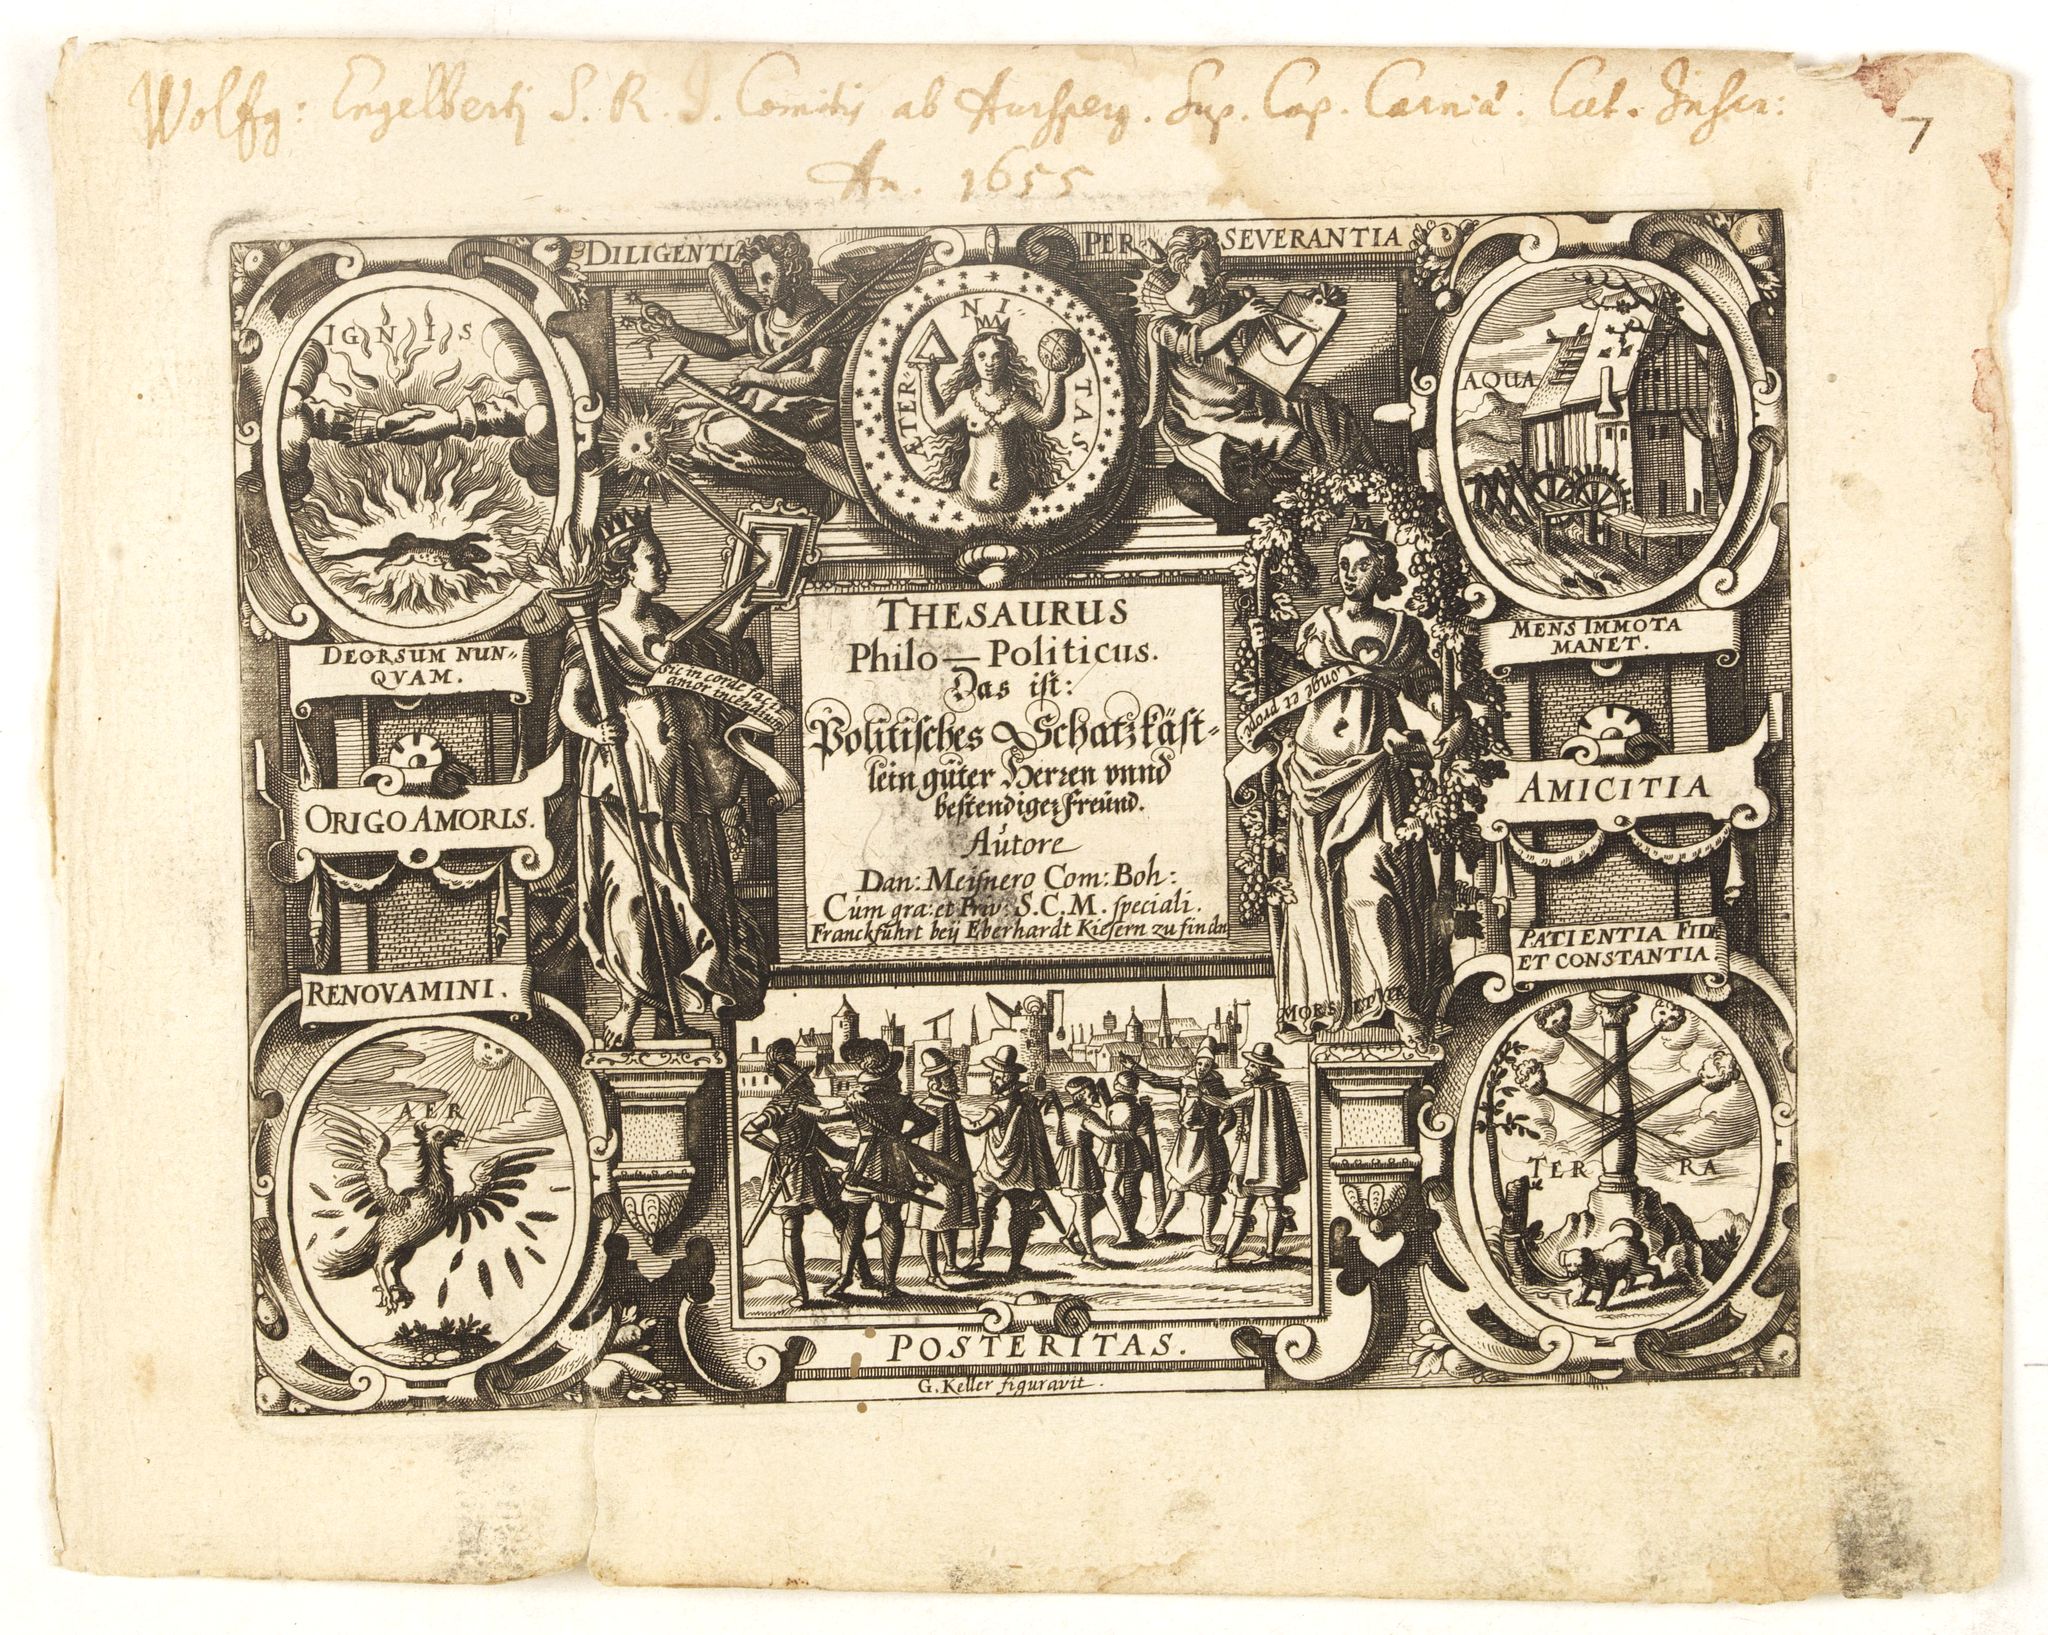 Wolfg: Engelberti S. R. I. Comitis ab Aursperg. Sup. Cap. Carniæ. Cat. Inscr:
An. 1655
7
DILIGENTIA
PER- SEVERANTIA
ÆTER- NI TAS
IGNIS
AQUA
DEORSUM NUN-
QVAM.
MENS IMMOTA
MANET.
Sic in corde facit
amor incendium
Longe et prope
THESAURUS
Philo-Politicus.
Das ist:
Politisches Schatzkäst-
lein güter Herzen vnnd
bestendiger freünd.
Aútore
Dan: Meisnero Com: Boh:
Cúm gra: et Priv: S.C.M. speciali.
Franckfúhrt beÿ Eberhardt Kiesern zu findn
ORIGO AMORIS.
AMICITIA
RENOVAMINI.
PATIENTIA FIDE
ET CONSTANTIA.
MORS ET VITA
AER
TER RA
POSTERITAS.
G. Keller figuravit.